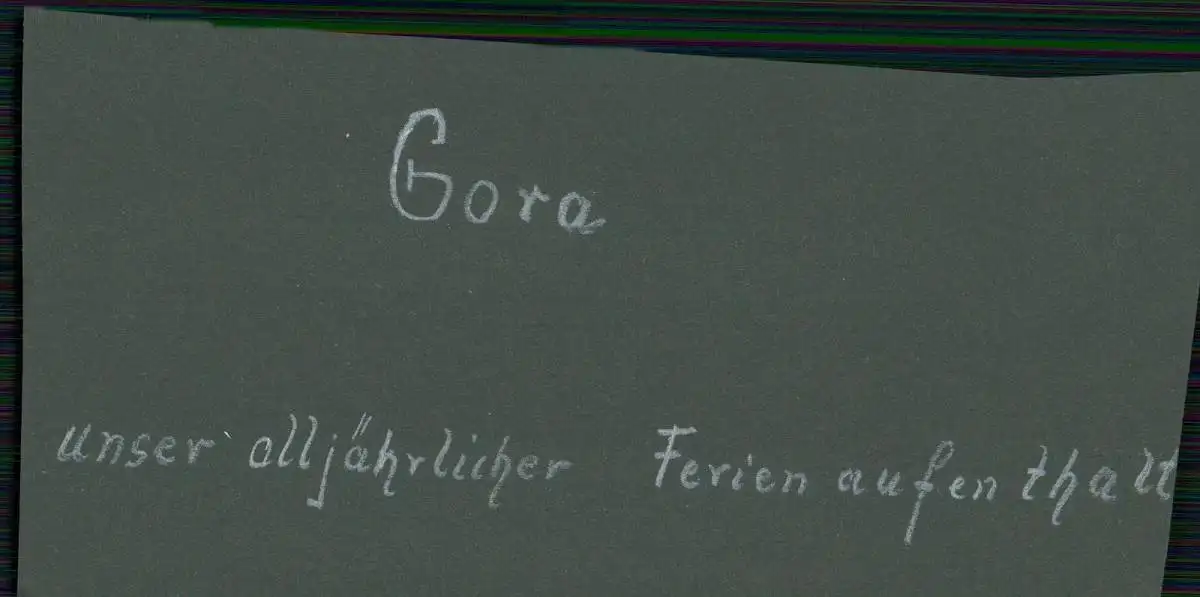 Gora
unser alljährlicher Ferienaufenthalt